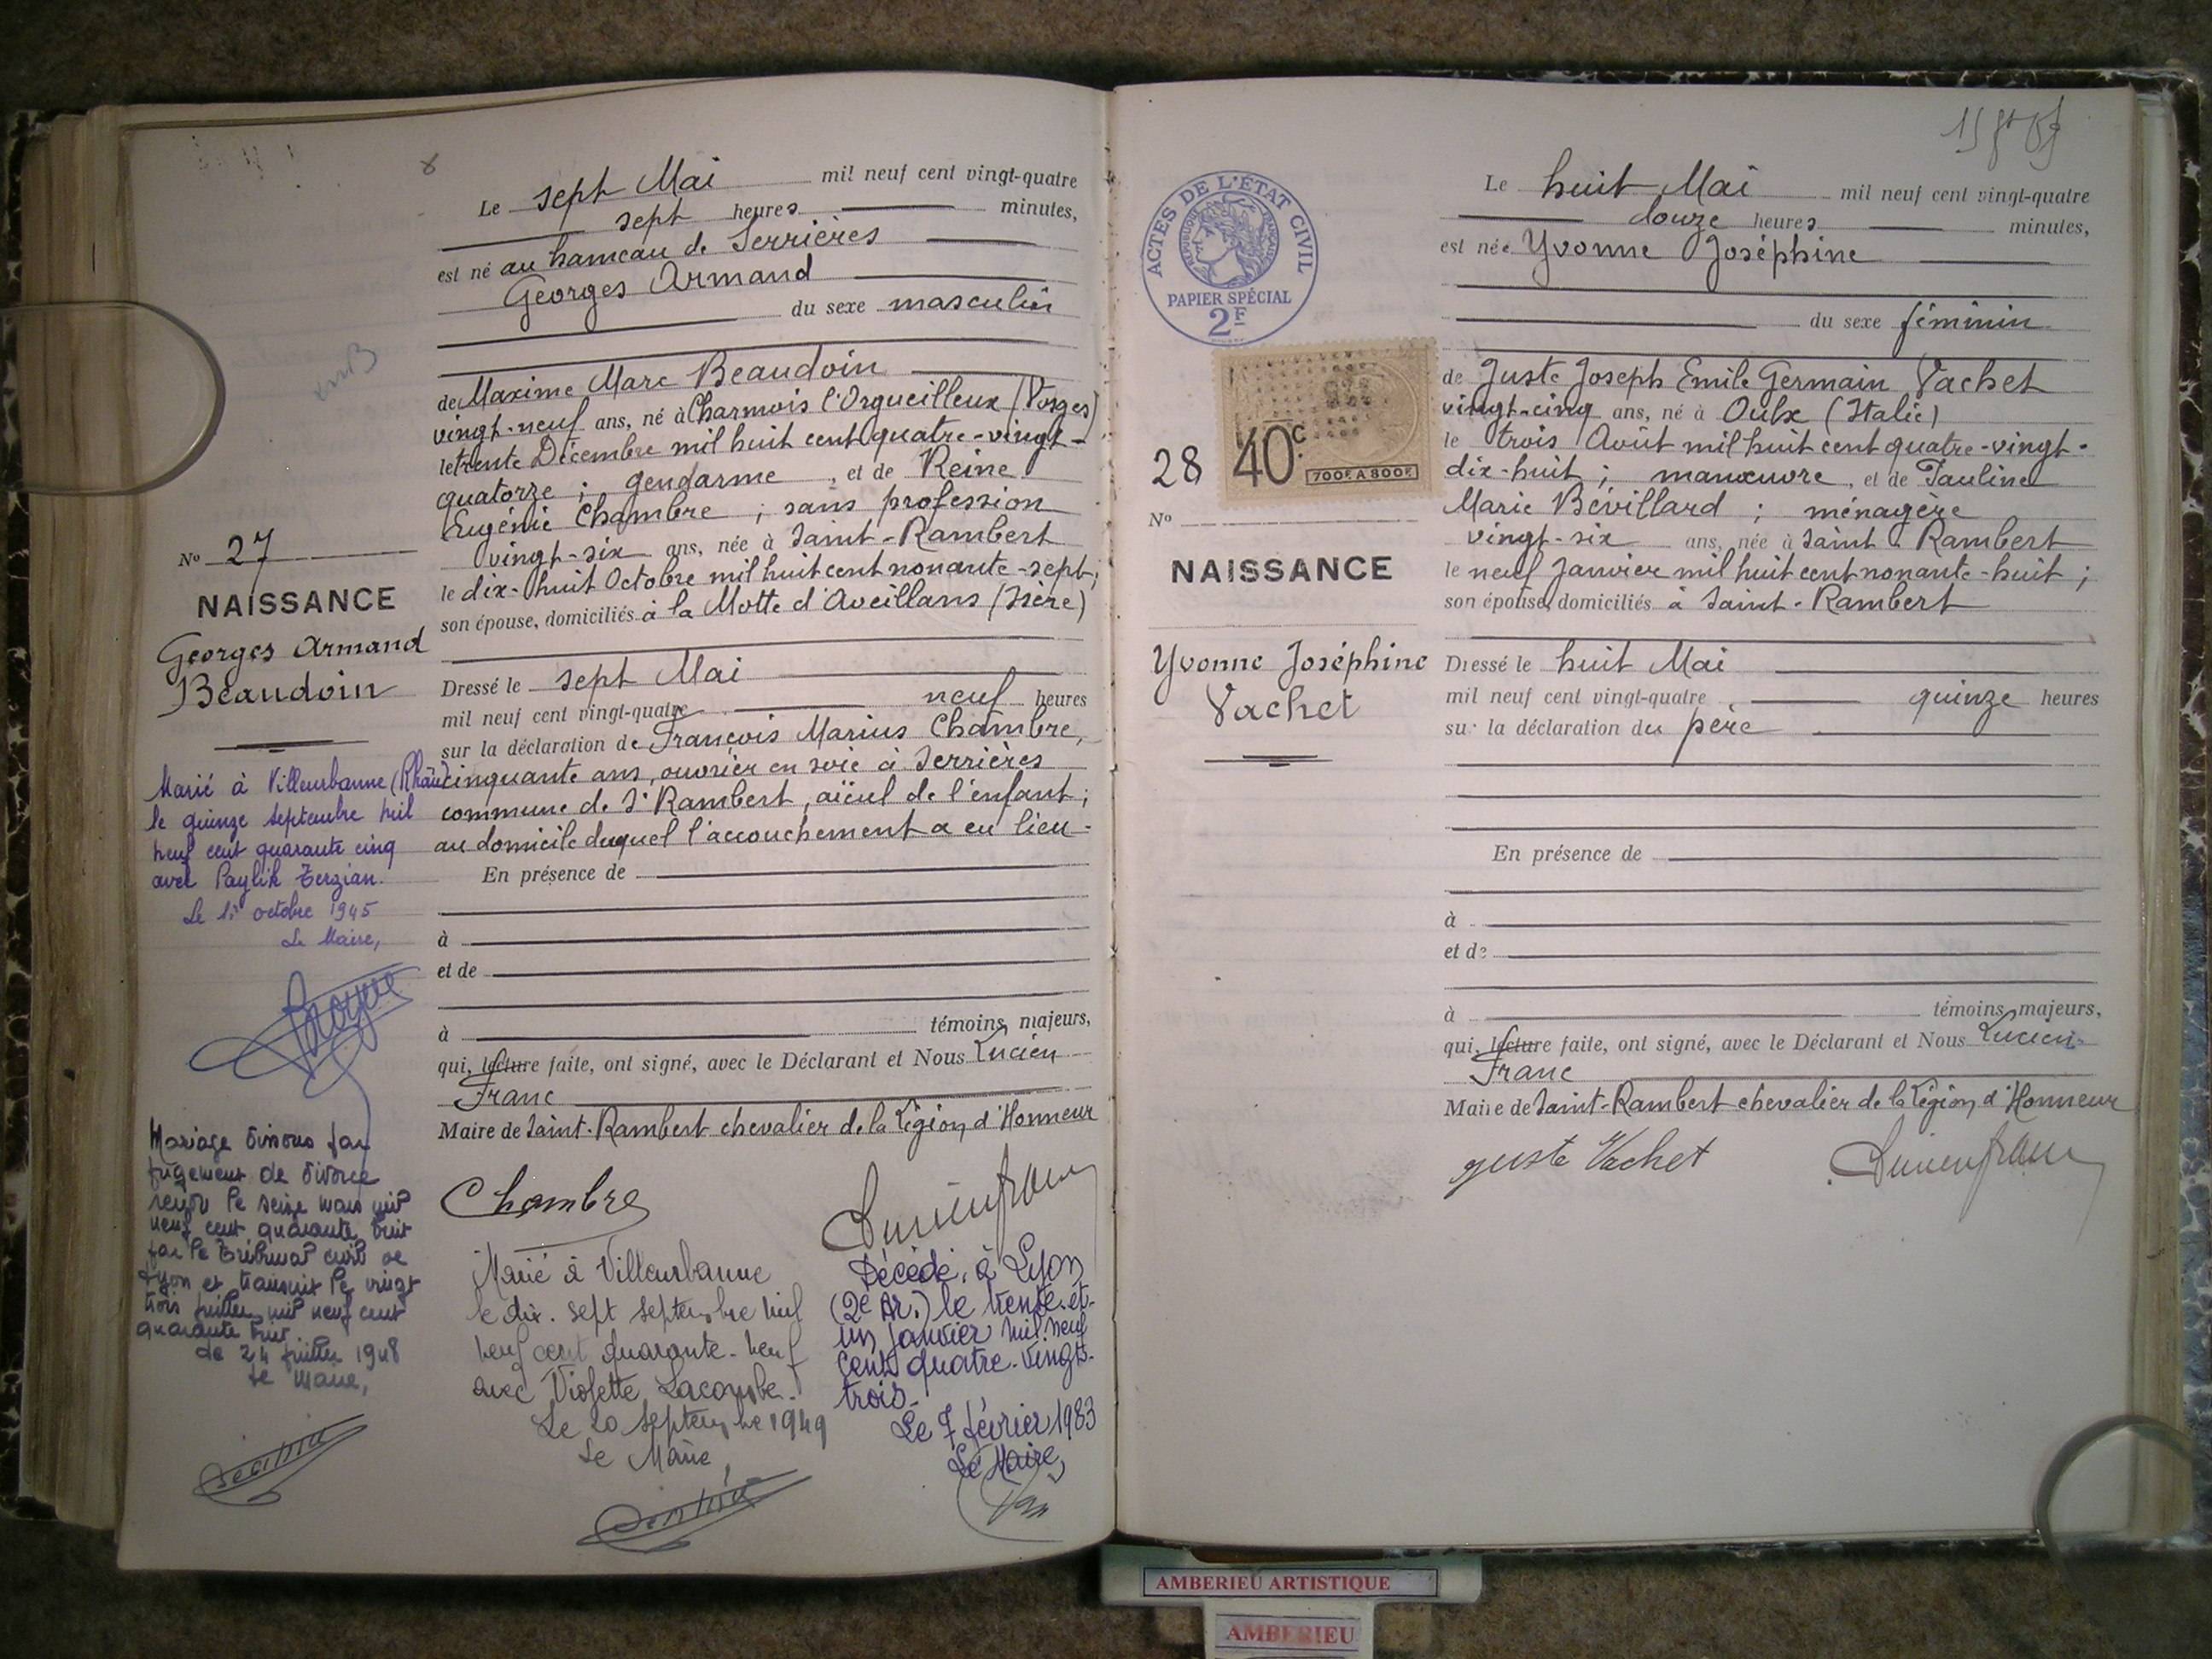 Le sept Mai mil neuf cent vingt-quatre
sept heures minutes,
est né au hameau de Serrières
Georges Armand
du sexe masculin
de Maxime Marc Beaudoin
vingt-neuf ans, né à Charmois l'Orgueilleux (Vosges)
le trente Décembre mil huit cent quatre-vingt-
quatorze ; gendarme, et de Reine
Eugénie Chambre ; sans profession
vingt-six ans, née à Saint-Rambert
le dix-huit Octobre mil huit cent nonante-sept ;
son épouse, domiciliés à la Motte d'Aveillans (Isère)
Dressé le sept Mai
mil neuf cent vingt-quatre neuf heures
sur la déclaration de François Marius Chambre,
cinquante ans, ouvrier en soie à Serrières
commune de St Rambert, aïeul de l'enfant ;
au domicile duquel l'accouchement a eu lieu-
En présence de
à
et de
à témoins majeurs,
qui, lecture faite, ont signé, avec le Déclarant et Nous Lucien
Franc
Maire de Saint-Rambert chevalier de la Légion d'Honneur
Chambre
Lucien Franc
No 27
NAISSANCE
Georges Armand
Beaudoin
Marié à Villeurbanne (Rhône)
le quinze septembre mil
neuf cent quarante cinq
avec Paylik Terzian.
Le 1er octobre 1945
Le Maire,
Mariage dissous par
jugement de divorce
rendu le seize mars mil
neuf cent quarante huit
par le Tribunal civil de
Lyon et transcrit le vingt
trois juillet mil neuf cent
quarante huit
de 24 juillet 1948
Le Maire,
Marié à Villeurbanne
le dix-sept septembre mil
neuf cent quarante-neuf
avec Violette Lacombe.
Le 20 septembre 1949
Le Maire,
Décédé à Lyon
(2e Ar.) le trente-et-
un janvier mil neuf
cent quatre-vingt-
trois.
Le 7 février 1983
Le Maire,
ACTES DE L'ÉTAT CIVIL
RÉPUBLIQUE FRANÇAISE
PAPIER SPÉCIAL
2F
40c.
700F. A 800F.
28
No
NAISSANCE
Yvonne Joséphine
Vachet
Le huit Mai mil neuf cent vingt-quatre
douze heures minutes,
est née Yvonne Joséphine
du sexe féminin
de Juste Joseph Emile Germain Vachet
vingt-cinq ans, né à Oulx (Italie)
le trois Août mil huit cent quatre-vingt-
dix-huit ; manœuvre, et de Pauline
Marie Bévillard ; ménagère
vingt-six ans, née à Saint-Rambert
le neuf Janvier mil huit cent nonante-huit ;
son épouse, domiciliés à Saint-Rambert
Dressé le huit Mai
mil neuf cent vingt-quatre quinze heures
sur la déclaration du père
En présence de
à
et de
à témoins majeurs,
qui, lecture faite, ont signé, avec le Déclarant et Nous Lucien
Franc
Maire de Saint-Rambert chevalier de la Légion d'Honneur
Juste Vachet
Lucien Franc
AMBERIEU ARTISTIQUE
AMBERIEU